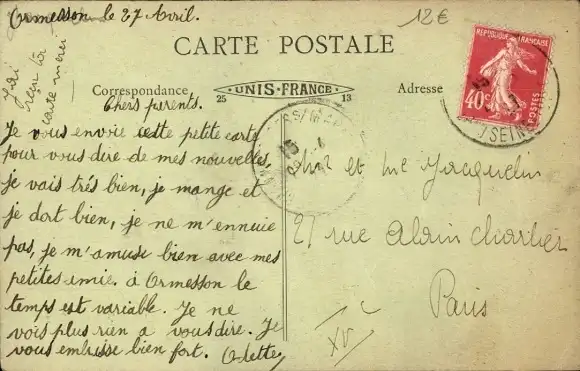 Ormesson le 27 Avril.
12€
J'ai
reçu ta
carte merci
CARTE POSTALE
Correspondance
UNIS-FRANCE
25
13
Adresse
REPUBLIQUE FRANÇAISE
40c
POSTES
SEINE
Chers parents.
Je vous envoie cette petite carte
pour vous dire de mes nouvelles,
je vais très bien, je mange et
je dort bien, je ne m'ennuie
pas, je m'amuse bien avec mes
petites amie. à Ormesson le
temps est variable. Je ne
vois plus rien a vous dire. Je
vous embrisse bien fort. Odette,
Mr et Me Jacquelin
27 rue Alain Chartier
Paris
XVe